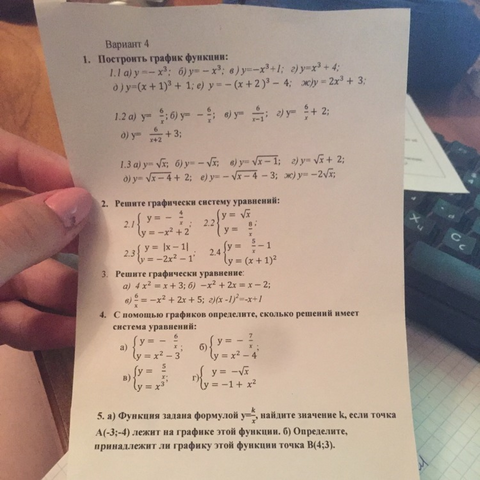 Вариант 4
1. Построить график функции:
1.1 а) y=− x³; б) y= − x³; в) y=−x³+1; г) y=x³ + 4;
д) y=(x + 1)³ + 1; е) y= − (x + 2 )³ − 4; ж)y = 2x³ + 3;
1.2 а) y= 6/x; б) y= − 6/x; в) y= 6/(x−1); г) y= 6/x + 2;
д) y= 6/(x+2) + 3;
1.3 а) y= √x; б) y= − √x; в) y= √(x − 1); г) y= √x + 2;
д) y= √(x − 4) + 2; е) y= − √(x − 4) − 3; ж) y= −2√x;
2. Решите графически систему уравнений:
2.1 { y = − 4/x ; y = −x² + 2 2.2 { y = √x ; y = 8/x ;
2.3 { y = |x − 1| ; y = −2x² − 1 2.4 { y = 5/x − 1 ; y = (x + 1)²
3. Решите графически уравнение:
а) 4 x² = x + 3; б) −x² + 2x = x − 2;
в) 6/x = −x² + 2x + 5; г)(x -1)²=-x+1
4. С помощью графиков определите, сколько решений имеет
система уравнений:
а) { y = − 6/x ; y = x² − 3 б) { y = − 7/x ; y = x² − 4
в) { y = 5/x ; y = x³ г) { y = −√x y = −1 + x²
5. а) Функция задана формулой y=k/x, найдите значение k, если точка
А(-3;-4) лежит на графике этой функции. б) Определите,
принадлежит ли графику этой функции точка В(4;3).